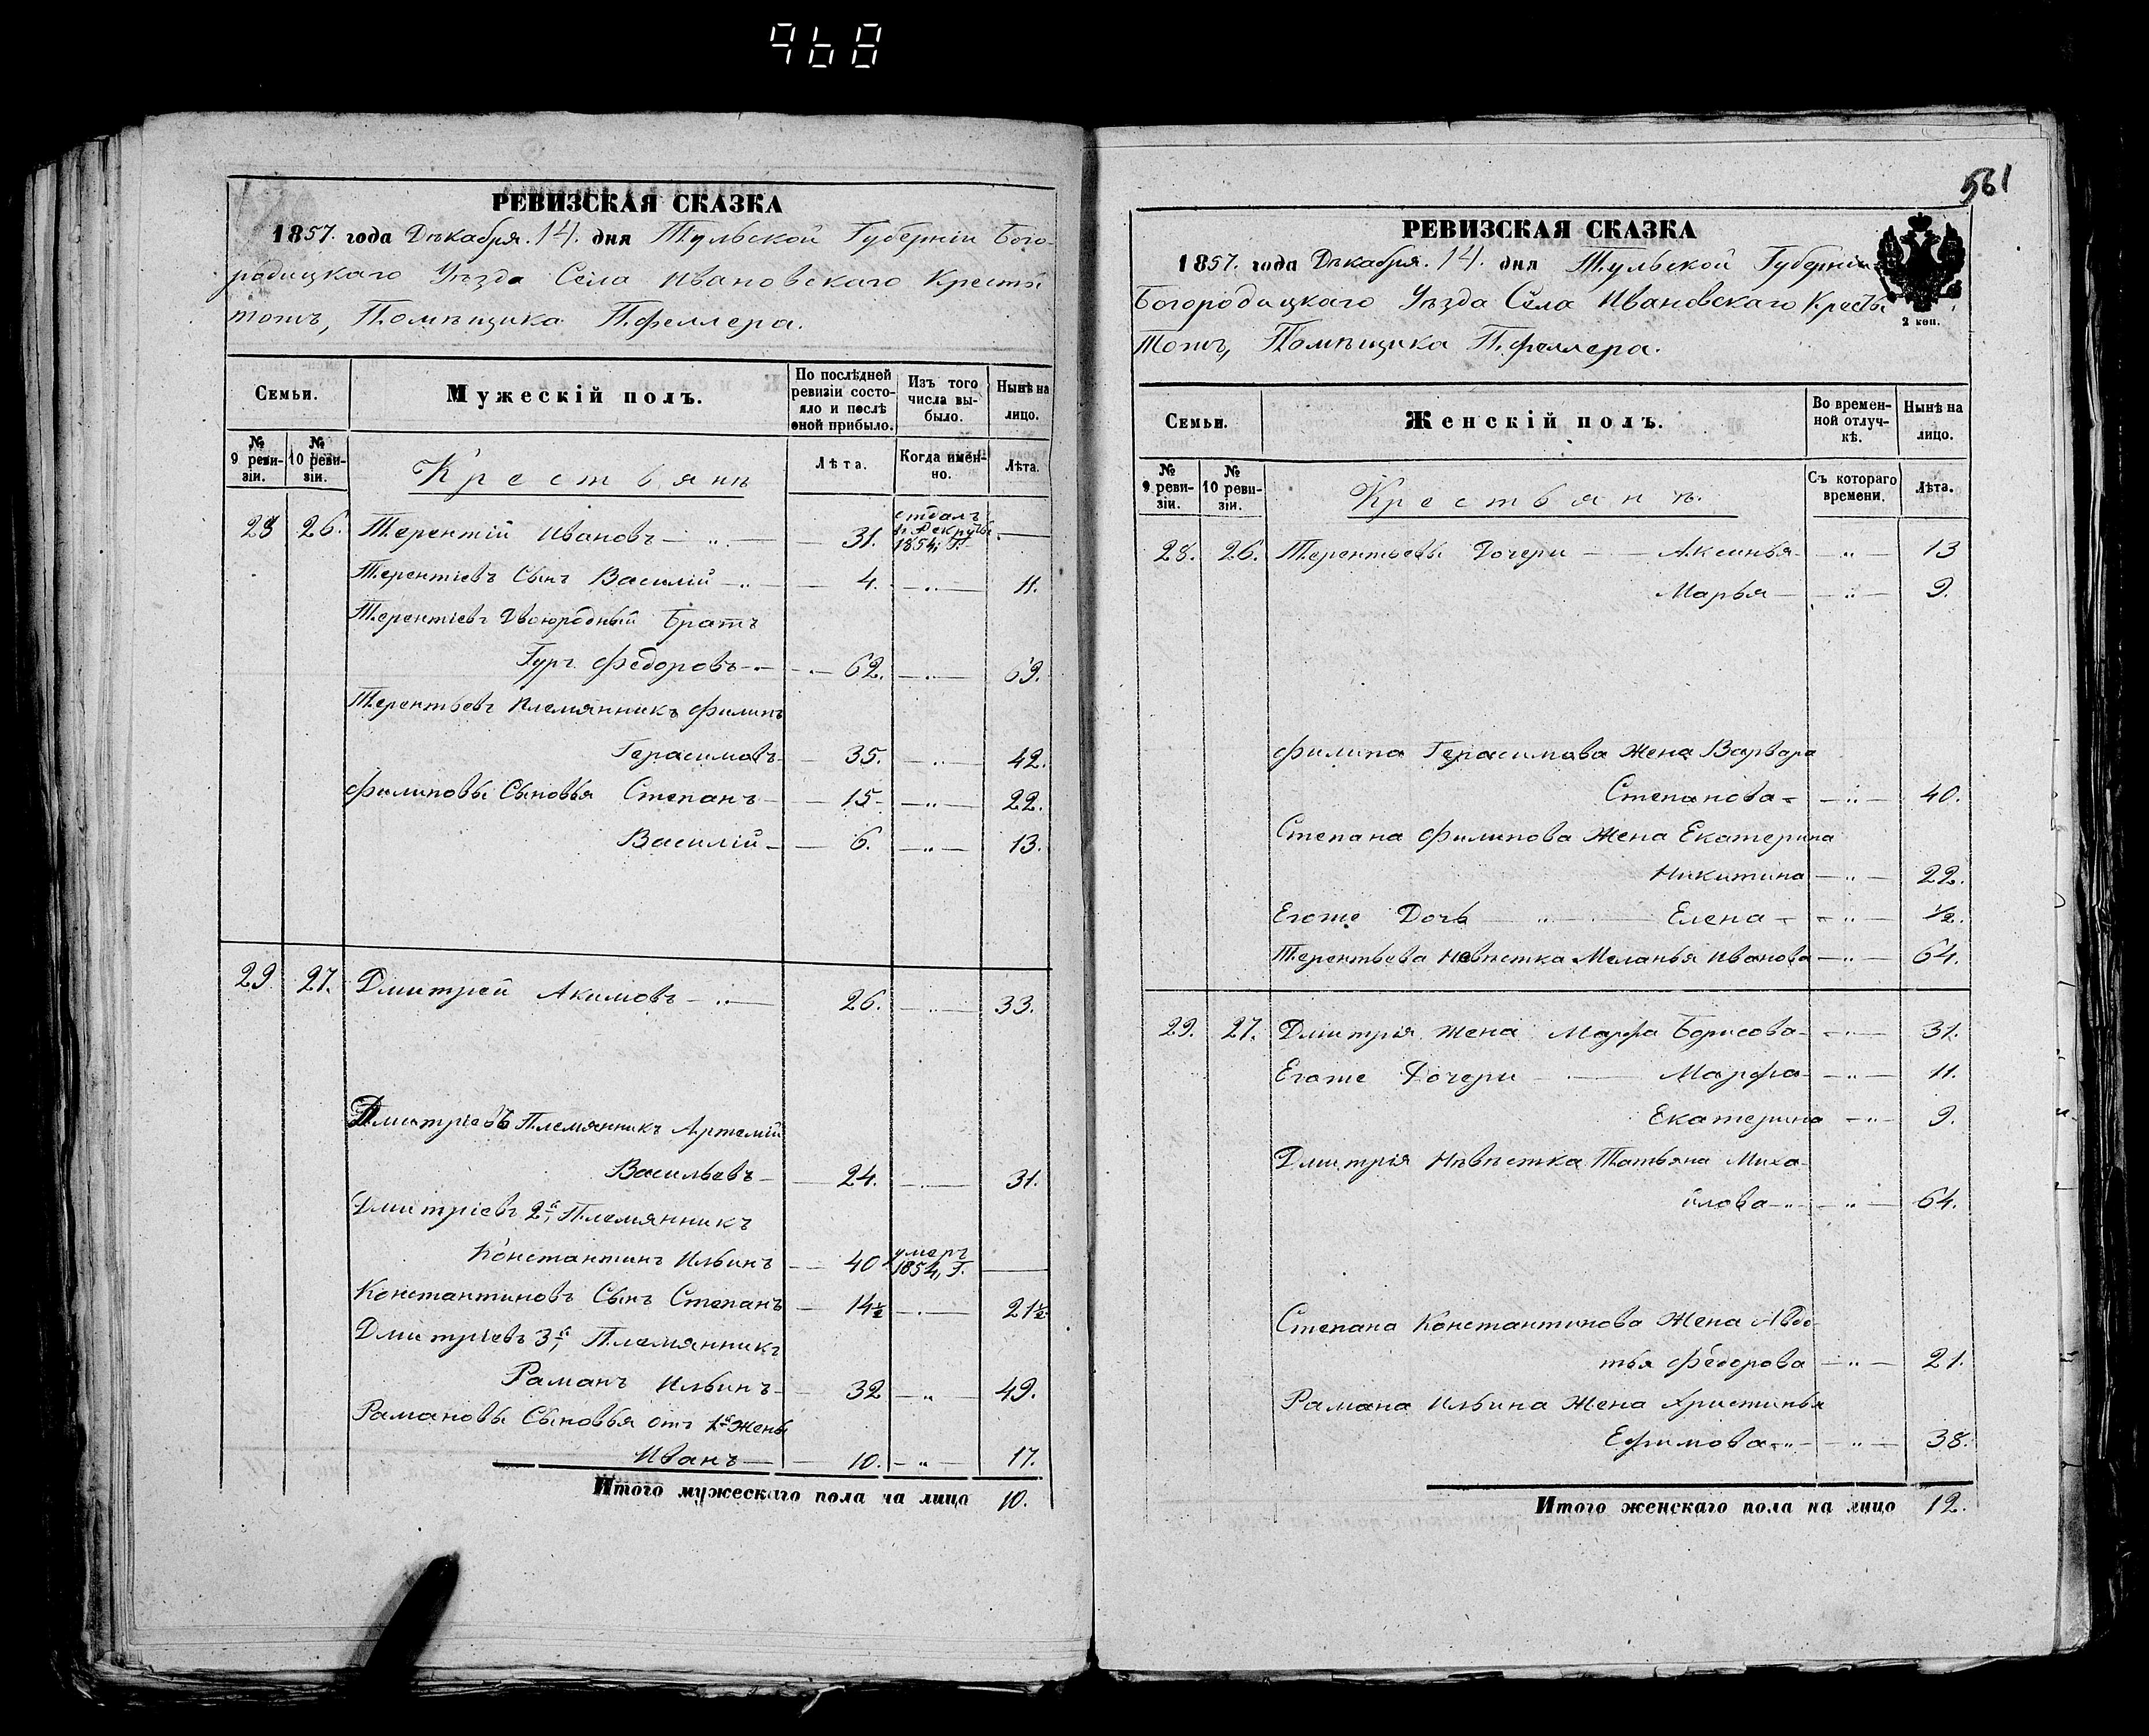 968
РЕВИЗСКАЯ СКАЗКА
1857. года Декабря. 14. дня Тульской Губерніи Бого-
родицкаго Уѣзда Села Ивановскаго Кресты
тожъ, Помѣщика Пфеллера.
Семьи.
Мужескій полъ.
По послѣдней ревизіи состо-
яло и послѣ
оной прибыло.
Изъ того
числа вы-
было.
Нынѣ на
лицо.
№ 9 реви-
зіи.
№ 10 реви-
зіи.
Крестьянъ
Лѣта.
Когда имен-
но.
Лѣта.
28 26. Терентій Ивановъ — 31. отданъ в Рекруты 1854, г. —
Терентіевъ Сынъ Василій — 4. — 11.
Терентіевъ Двоюродный братъ
Гуръ Федоровъ — 62. — 69.
Терентьевъ племянникъ Филипъ
Герасимовъ — 35. — 42.
Филиповы Сыновья Степанъ — 15 — 22.
Василій — 6. — 13.
29 27. Дмитрей Акимовъ — 26. — 33.
Дмитріевъ Племянникъ Артемій
Васильевъ — 24. — 31.
Дмитріевъ 2й, Племянникъ
Константинъ Ильинъ — 40 умеръ 1854, г. —
Константиновъ Сынъ Степанъ — 14½ — 21½
Дмитріевъ 3й, Племянникъ
Раманъ Ильинъ — 32 — 49.
Рамановы Сыновья отъ 1й жены
Иванъ — 10. — 17.
Итого мужескаго пола на лицо 10.
561
РЕВИЗСКАЯ СКАЗКА
1857. года Декабря. 14. дня Тульской Губерніи
Богородицкаго Уѣзда Села Ивановскаго Кресты
тожъ, Помѣщика Пфеллера.
2 коп.
Семьи.
Женскій полъ.
Во времен-
ной отлуч-
кѣ.
Нынѣ на
лицо.
№ 9 реви-
зіи.
№ 10 реви-
зіи.
Крестьянъ.
Съ котораго
времени.
Лѣта.
28. 26. Терентьевы Дочери — Аксинья — 13
Марья — 9.
Филипа Герасимова Жена Варвара
Степанова — 40.
Степана Филипова Жена Екатерина
Никитина — 22.
Егоже Дочь — Елена — ½.
Терентьева Невѣстка Меланья Иванова — 64.
29. 27. Дмитрія Жена Марфа Борисова — 31.
Егоже Дочери — Марфа — 11.
Екатерина — 9.
Дмитрія Невѣстка Татьяна Миха-
йлова — 64.
Степана Константинова Жена Авдо-
тья Федорова — 21.
Рамана Ильина Жена Христинья
Ефимова — 38.
Итого женскаго пола на лицо 12.